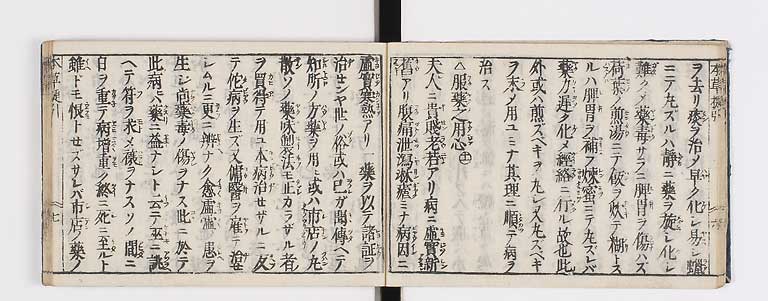 ヲ去リ痰ヲ治ノ早ク化シ易シ蠟
ニテ丸ズルハ靜ニ藥ヲ旋シ化シ
難クメ藥毒サラニ脾胃ヲ傷ハズ
荷葉ノ煎湯ニテ飯ヲ炊テ糊トス
ルハ脾胃ヲ補フ煉蜜ニテ丸スレバ
藥力遲ク化メ經絡ニ行ル故也此
外或ハ煎スベキヲ丸シ又丸スベキ
ヲ末メ用ユミナ其理ニ順テ病ヲ
治ス
服藥之用心
夫人ニ貴賤老若アリ病ニ虛實新
舊アリ腹痛泄瀉 ミナ病因ニ
虛實寒熱アリ一藥ヲ以テ諸証ヲ
治センヤ世ノ俗或ハ己ガ聞傳ヘテ
知所ノ方藥ヲ用ヒ或ハ市店ノ丸
散ソノ藥味製法モ正カラザル者
ヲ買得テ用ユ本病治セザルニ又
テ他病ヲ生ズ又庸醫ヲ雇テ治セ
シムルニ更ニ辨ナク 虛 ノ患ヲ
生シ宿藥毒ノ傷ヲナス此ニ於テ
此病ハ藥ニ益ナシト云テ巫ニ
ヘテ符ヲ求メ ヲナスソノ間ニ
日ヲ重テ病增重ク終ニ死ニ至ルト
雖ドモ悦トセズサレバ市店ノ藥ノ
本草
七